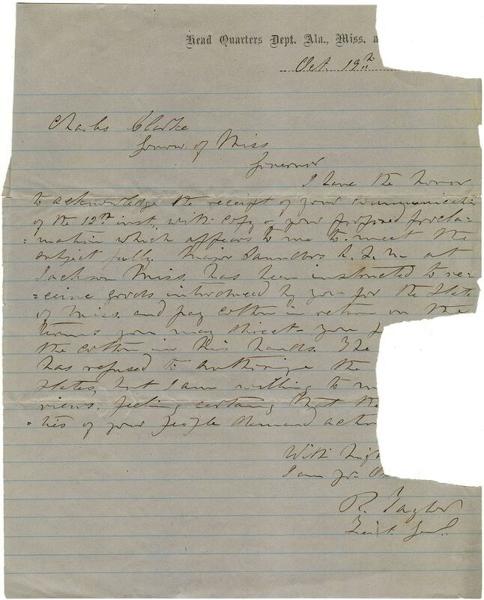 Head Quarters Dept. Ala., Miss. a
Oct. 19th
Charles Clarke
Govnor of Miss
Governor
I have the honor
to acknowledge the receipt of your communicati
of the 12th inst. with copy of your proposed procla-
mation which appears to me to meet the
subject fully. Major Saunders Q. M. at
Jackson Miss. has been instructed to re-
ceive goods introduced by you for the State
of Miss. and pay cotton in return on the
terms you may direct. You
the cotton in his hands. The
has refused to authorize the
States, but I am willing to m
views, feeling certain that the
ties of your people demand action
With high
I am Yr. O
R. Taylor
Lieut. Genl.